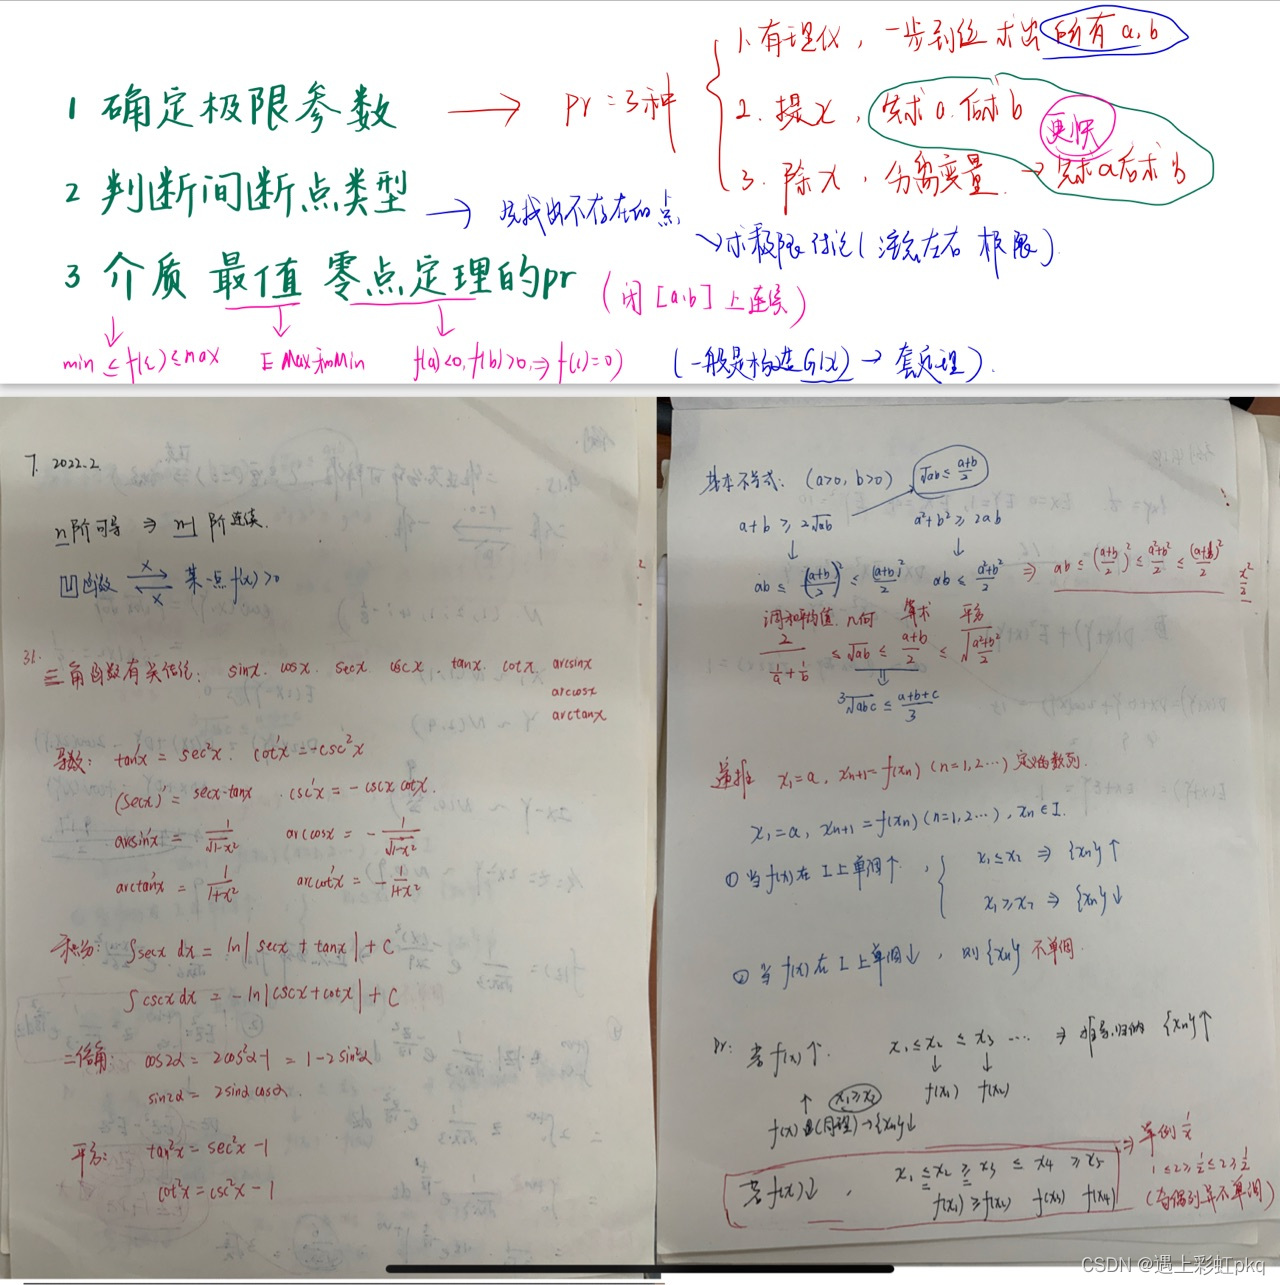 1 确定极限参数 → pr:3种
1. 有理化，一步到位 求出所有a,b
2. 提x，先求a.后求b
更快
3. 除x，分离变量 → 先求a后求b
2 判断间断点类型 → 先找出不存在的点,
→求极限讨论(注意左右 极限).
3 介质 最值 零点定理的pr (闭[a,b]上连续)
min ≤ f(c) ≤ max ∃ Max和Min f(a)<0, f(b)>0, ⇒ f(c)=0) (一般是构造G(x) → 套定理).
7. 2022.2.
n阶可导 ⇒ n-1 阶连续.
凹函数 某一点 f(x)>0
31.
三角函数有关结论: sinx. cosx. secx cscx. tanx. cotx. arcsinx
arccosx
arctanx
导数: tan'x = sec²x. cot'x = -csc²x
(secx)' = secx·tanx . csc'x = -cscx cotx.
arcsin'x = 1/√(1-x²) arccosx = -1/√(1-x²)
arctan'x = 1/(1+x²) arccot'x = -1/(1+x²)
积分: ∫secx dx = ln|secx + tanx| + C
∫cscx dx = -ln|cscx+cotx| + C
二倍角: cos2α = 2cos²α-1 = 1-2sin²α
sin2α = 2sinα cosα.
平方: tan²x = sec²x-1
cot²x = csc²x-1
基本不等式: (a>0, b>0) √ab ≤ (a+b)/2
a+b ≥ 2√ab a²+b² ≥ 2ab
ab ≤ ((a+b)/2)² ≤ (a+b)²/2 ab ≤ (a²+b²)/2 ⇒ ab ≤ ((a+b)/2)² ≤ (a²+b²)/2 ≤ (a+b)²/2
调和平均值 几何 算术 平方
2/(1/a+1/b) ≤ √ab ≤ (a+b)/2 ≤ √((a²+b²)/2)
³√abc ≤ (a+b+c)/3
递推: x₁=a, xₙ₊₁=f(xₙ) (n=1,2…) 定义的数列.
x₁=a, xₙ₊₁=f(xₙ) (n=1,2…), xₙ∈I.
① 当f(x)在 I上单调↑, x₁≤x₂ ⇒ {xₙ}↑
x₁≥x₂ ⇒ {xₙ}↓
② 当 f(x)在 I上单调↓, 则{xₙ} 不单调.
Pr: 若f(x)↑. x₁≤x₂ ≤ x₃ … ⇒ 归纳 {xₙ}↑
f(x₁) f(x₂)
x₁≥x₂
f(x) (同理)→{xₙ}↓
若f(x)↓, x₁ ≤ x₂ ≥ x₃ ≤ x₄ ≥ x₅
f(x₁)≥f(x₂) f(x₃) f(x₄)
⇒ 举例 1/x
1 ≤ 2 ≥ 1/2 ≤ 2 ≥ 1/2
(奇偶列并不单调)
CSDN @遇上彩虹pkq